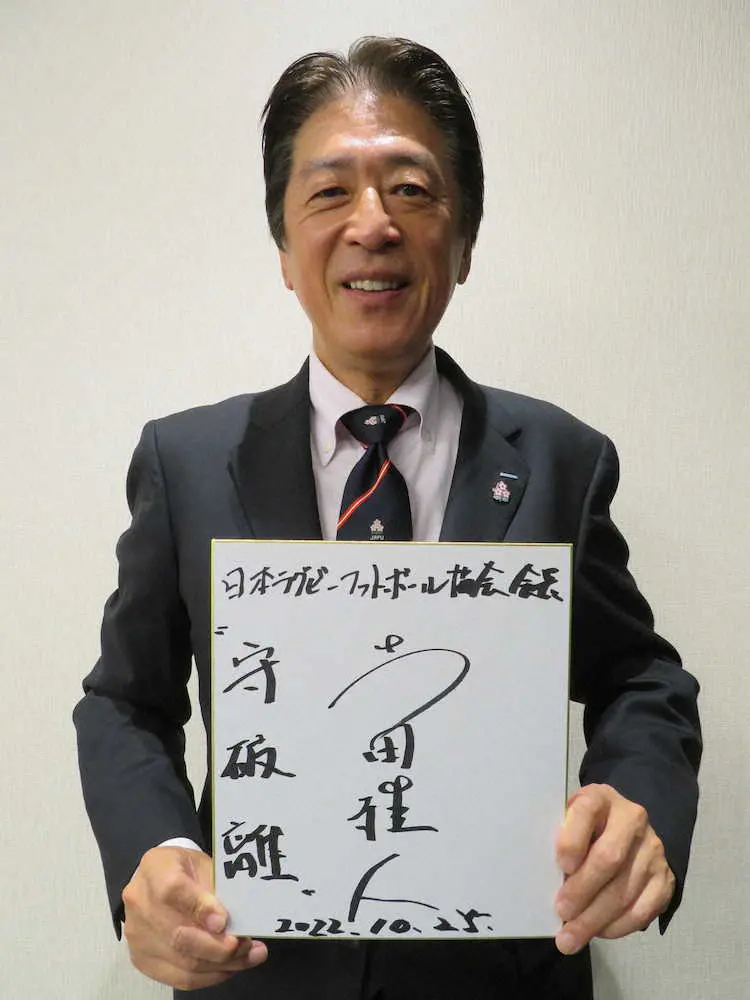 日本ラグビーフットボール協会 会長
土田雅人
"守破離"
2022.10.25.
JRFU